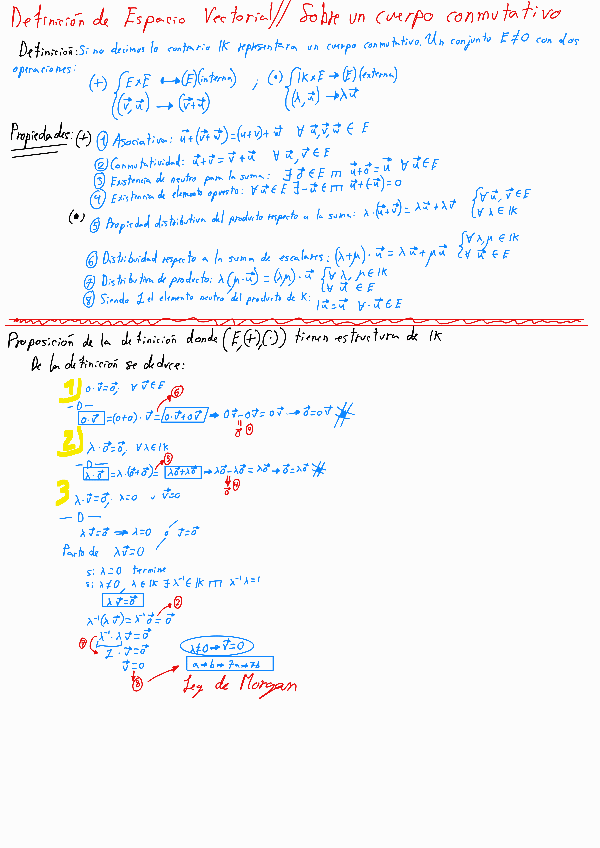 Definición de Espacio Vectorial // Sobre un cuerpo conmutativo
Definición: Si no decimos lo contrario IK representara un cuerpo conmutativo. Un conjunto E≠0 con dos
operaciones:
(+) { E×E ⟷ (E)(interna) ; (•) { IK×E → (E)(externa)
(v⃗, u⃗) → (v⃗+u⃗) (λ, u⃗) → λu⃗
Propiedades: (+) ① Asociativa: u⃗+(v⃗+w⃗)=(u+v)+w⃗ ∀ u⃗,v⃗,w⃗ ∈ E
② Conmutatividad: u⃗+v⃗ = v⃗+u⃗ ∀ u⃗,v⃗ ∈ E
③ Existencia de neutro para la suma: ∃ o⃗ ∈ E m u⃗+o⃗=u⃗ ∀ u⃗ ∈ E
④ Existencia de elemento opuesto: ∀ u⃗ ∈ E ∃ -u⃗ ∈ m u⃗+(-u⃗)=0
(•) ⑤ Propiedad distributiva del producto respecto a la suma: λ·(u⃗+v⃗) = λu⃗+λv⃗ { ∀ u⃗, v⃗ ∈ E
∀ λ ∈ IK
⑥ Distribuidad respecto a la suma de escalares: (λ+μ)·u⃗ = λu⃗+μu⃗ { ∀ λ,μ ∈ IK
∀ u⃗ ∈ E
⑦ Distributiva de producto: λ(μ·u⃗) = (λμ)·u⃗ { ∀ λ, μ ∈ IK
∀ u⃗ ∈ E
⑧ Siendo 1 el elemento neutro del producto de K: 1u⃗=u⃗ ∀·u⃗ ∈ E
Proposición de la definición donde (E,(+),(·)) tienen estructura de IK
De la definición se deduce:
1) 0·v⃗=o⃗, ∀ v⃗ ∈ E
—D— ⑥
0·v⃗ =(0+0)·v⃗= 0·v⃗+0v⃗ → 0v⃗-0v⃗=0v⃗ → o⃗=0v⃗ #
o⃗ ④
2) λ·o⃗=o⃗, ∀λ∈IK
—D— ⑤
λ·o⃗ =λ·(o⃗+o⃗)= λo⃗+λo⃗ → λo⃗-λo⃗=λo⃗ → o⃗=λo⃗ #
o⃗ ④
3 λ·v⃗=o⃗, λ=0 v v⃗=0
—D—
λv⃗=o⃗ ⇒ λ=0 o v⃗=o⃗
Parto de λv⃗=0
si λ=0 termine
si λ≠0, λ∈IK ∃ λ⁻¹∈IK m λ⁻¹λ=1
λv⃗=o⃗
λ⁻¹(λv⃗)=λ⁻¹o⃗=o⃗ ②
⑦ λ⁻¹·λv⃗=o⃗
1·v⃗=o⃗
v⃗=0
⑧
λ≠0→v⃗=0
a→b→7a→7b
Ley de Morgan